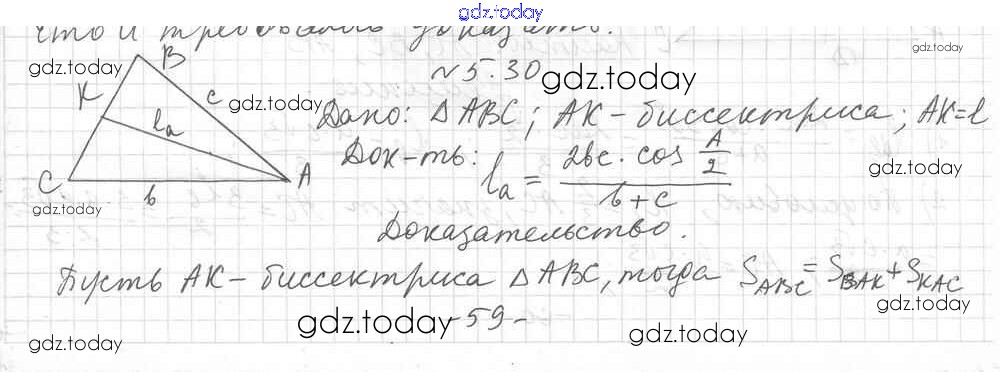 gdz.today
что и требовалось доказать.
gdz.today
№5.30
gdz.today
gdz.today
gdz.today
B
K
c
lₐ
C
A
b
gdz.today
Дано: ΔABC; AK - биссектриса; AK=l
Док-ть: lₐ = 2bc · cos A/2 / b+c
gdz.today
Доказательство.
Пусть AK - биссектриса ΔABC, тогда S_ABC = S_BAK + S_KAC
gdz.today
gdz.today
-59-
gdz.today
gdz.today